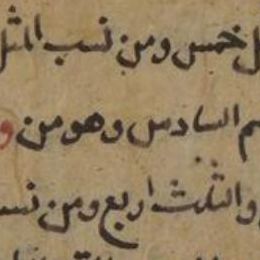 خمس ومن نسب المثل
السادس وهو من
والثلث اربع ومن